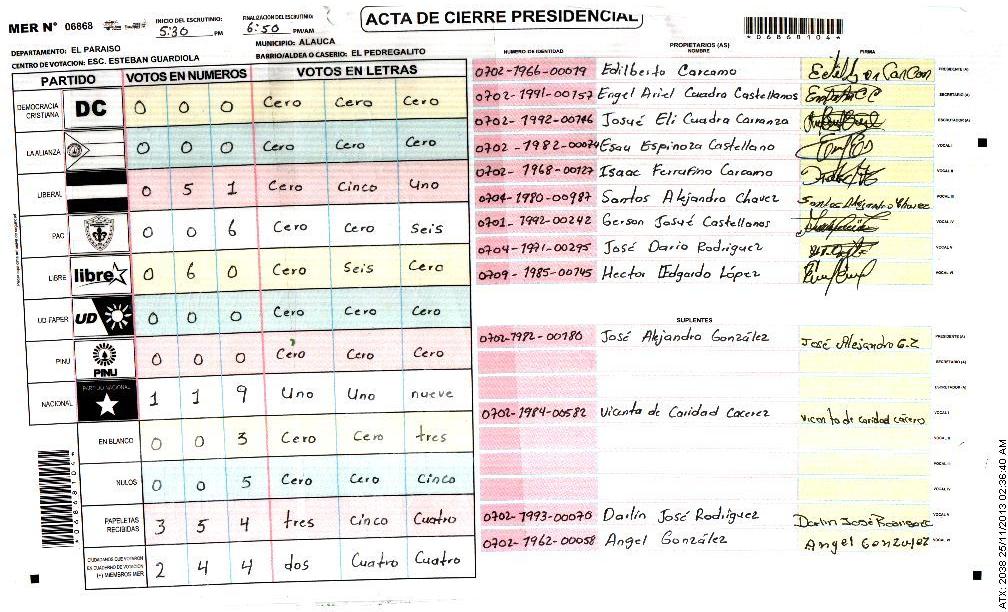 ACTA DE CIERRE PRESIDENCIAL
MER Nº 06868
INICIO DEL ESCRUTINIO: 5:30 PM
FINALIZACIÓN DEL ESCRUTINIO: 6:50 PM/AM
*06868104*
DEPARTAMENTO: EL PARAISO
MUNICIPIO: ALAUCA
CENTRO DE VOTACION: ESC. ESTEBAN GUARDIOLA
BARRIO/ALDEA O CASERIO: EL PEDREGALITO
PARTIDO VOTOS EN NUMEROS VOTOS EN LETRAS
DEMOCRACIA CRISTIANA DC 0 0 0 Cero Cero Cero
LA ALIANZA 0 0 0 Cero Cero Cero
LIBERAL 0 5 1 Cero Cinco Uno
PAC 0 0 6 Cero Cero Seis
LIBRE libre 0 6 0 Cero Seis Cero
UD FAPER UD 0 0 0 Cero Cero Cero
PINU PINU 0 0 0 Cero Cero Cero
NACIONAL PARTIDO NACIONAL 1 1 9 Uno Uno nueve
EN BLANCO 0 0 3 Cero Cero tres
NULOS 0 0 5 Cero Cero Cinco
PAPELETAS RECIBIDAS 3 5 4 tres Cinco Cuatro
CIUDADANOS QUE VOTARON EN CUADERNO DE VOTACION (+) MIEMBROS MER 2 4 4 dos Cuatro Cuatro
*06868104*
PROPIETARIOS (AS)
NUMERO DE IDENTIDAD NOMBRE FIRMA
0702-1966-00019 Edilberto Carcamo PRESIDENTE (A)
0702-1991-00157 Engel Ariel Cuadra Castellanos SECRETARIO (A)
0702-1992-00746 Josué Eli Cuadra Carranza ESCRUTADOR (A)
0702-1982-00074 Esau Espinoza Castellano VOCAL I
0702-1968-00127 Isaac Ferrafino Carcamo VOCAL II
0704-1980-00987 Santos Alejandro Chavez Santos Alejandro Chavez VOCAL III
0701-1992-00242 Gerson Josué Castellanos VOCAL IV
0704-1971-00295 José Dario Rodriguez VOCAL V
0709-1985-00145 Hector Edgardo López VOCAL VI
SUPLENTES
0702-1982-00180 José Alejandro González José Alejandro G.Z PRESIDENTE (A)
SECRETARIO (A)
ESCRUTADOR (A)
0702-1984-00582 Vicenta de Caridad Cacerez Vicenta de caridad cácero VOCAL I
VOCAL II
VOCAL III
VOCAL IV
0702-1993-00070 Darlin José Rodríguez VOCAL V
0702-1962-00058 Angel González Angel Gonzulez VOCAL VI
ATX: 2038 25/11/2013 02:36:40 AM